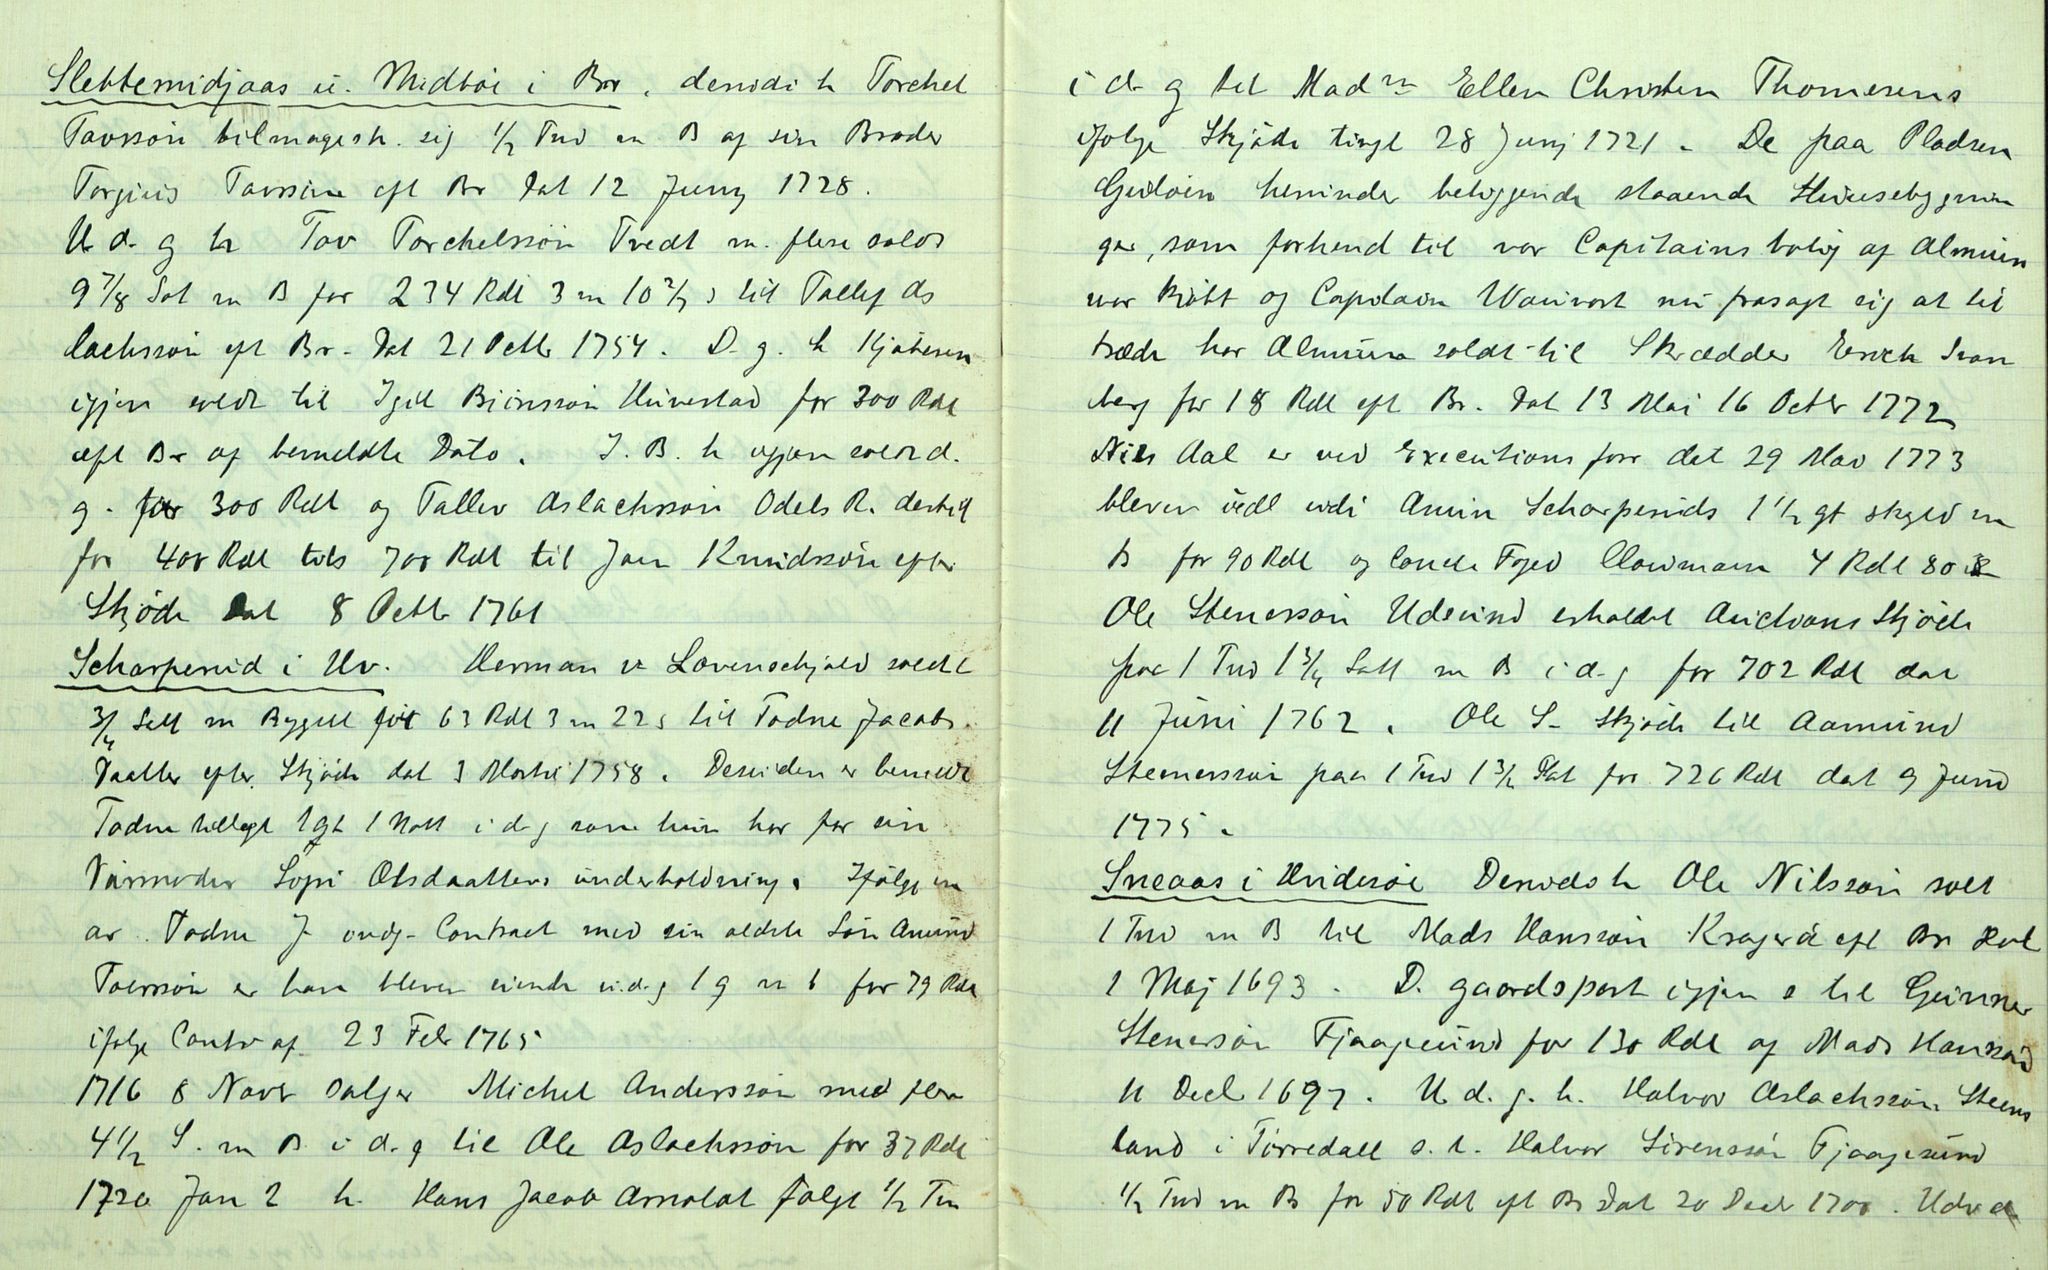 Slettemidjaas u. Midbøe i Br. derudi h Torchel
Tovssøn tilmagesk. sig 1/2 Tnd m B af sin Broder
Torgius Tovssøn eft Br Dat 12 Juny 1728.
U d. g h Tov Torchelssøn Tvedt m. flere solds
9 7/8 Set m B for 234 Rdl 3 m 10 2/3 s til Tallef As
lachssøn eft Br. Dat 21 Octbr 1754. D. g. h Kjøberen
igjen soldt til Igel Biørnssøn Huvestad for 300 Rdl
eft Br af bemeldte Dato. I. B. h igjen solds d.
g. for 300 Rdl og Tallev Aslachssøn Odels R. dertil
for 400 Rdl tils 700 Rdl til Joen Knudssøn efter
Skjøde Dat 8 Octb 1761
Scharperud i Hv. Herman v Løvenschjold soldt
3/4 Sett m Bygsel for 63 Rdl 3 m 22 s til Todne Jacobs
Daatter efter Skjøde dat 3 Martii 1758. Desuden er bemeldt
Todne tillagt 1 gt 1 Nott i d. g som hun har for sin
Værmoder Søpi Olsdaatters underholdning. Ifølge en
av Todne J undg. Contract med sin eldste Søn Amund
Toerssøn er han bleven eiende u. d. g 1 g m b for 79 Rdl
ifølge Contr af 23 Febr 1765
1716 8 Novr Salger Michel Anderssøn med flere
4 1/2 S. m B. i d. g til Ole Aslachssøn for 37 Rdl
1720 Jan 2 h. Hans Jacob Arnoldt solgt 1/2 Tn
i d g til Mad m Ellen Christen Thomesens
ifølge Skjøde tingl 28 Junj 1721. De paa Pladsen
Gudøien herunder beliggende staaende Huusebygnin
ger, som forhend til vor Capitains bolig af Almuen
var kiøbt og Capitain Wauvert nu frasagt sig at til
træde har Almuen soldt til Skrædder Erich Svan
berg for 18 Rdl eft Br. Dat 13 Mai 16 Octbr 1772
Nils Aal er ved Executions forr dat 29 Mai 1773
bleven udl udi Amun Scharperuds 1 1/2 gt skyld m
B for 90 Rdl og Conste Foged Clowmann 4 Rdl 80 s
Ole Stenerssøn Udsund erholdet Auctions Skjøde
paa 1 Tnd 1 3/4 Sett m B i d. g for 702 Rdl dat
11 Juni 1762. Ole S. Skjøde til Aamund
Stenerssøn paa 1 Tnd 1 3/4 Sat for 726 Rdl dat 9 Juni
1775.
Sneaas i Hvidesøe Deruds h Ole Nilssøn solt
1 Tnd m B til Mads Hanssøn Kragerø eft Br Dat
1 Maj 1693. D. gaardspart igjen s til Gunner
Stenersøn Fjaagesund for 130 Rdl af Mads Hanssøn
11 Decb 1697. U. d. g. h. Halvor Aslachssøn Steens
land i Tørredall s. t. Halvor Sørenssøn Fjaagesund
1/2 Tnd m B for 50 Rdl eft Br Dat 20 Decb 1700. Udi d